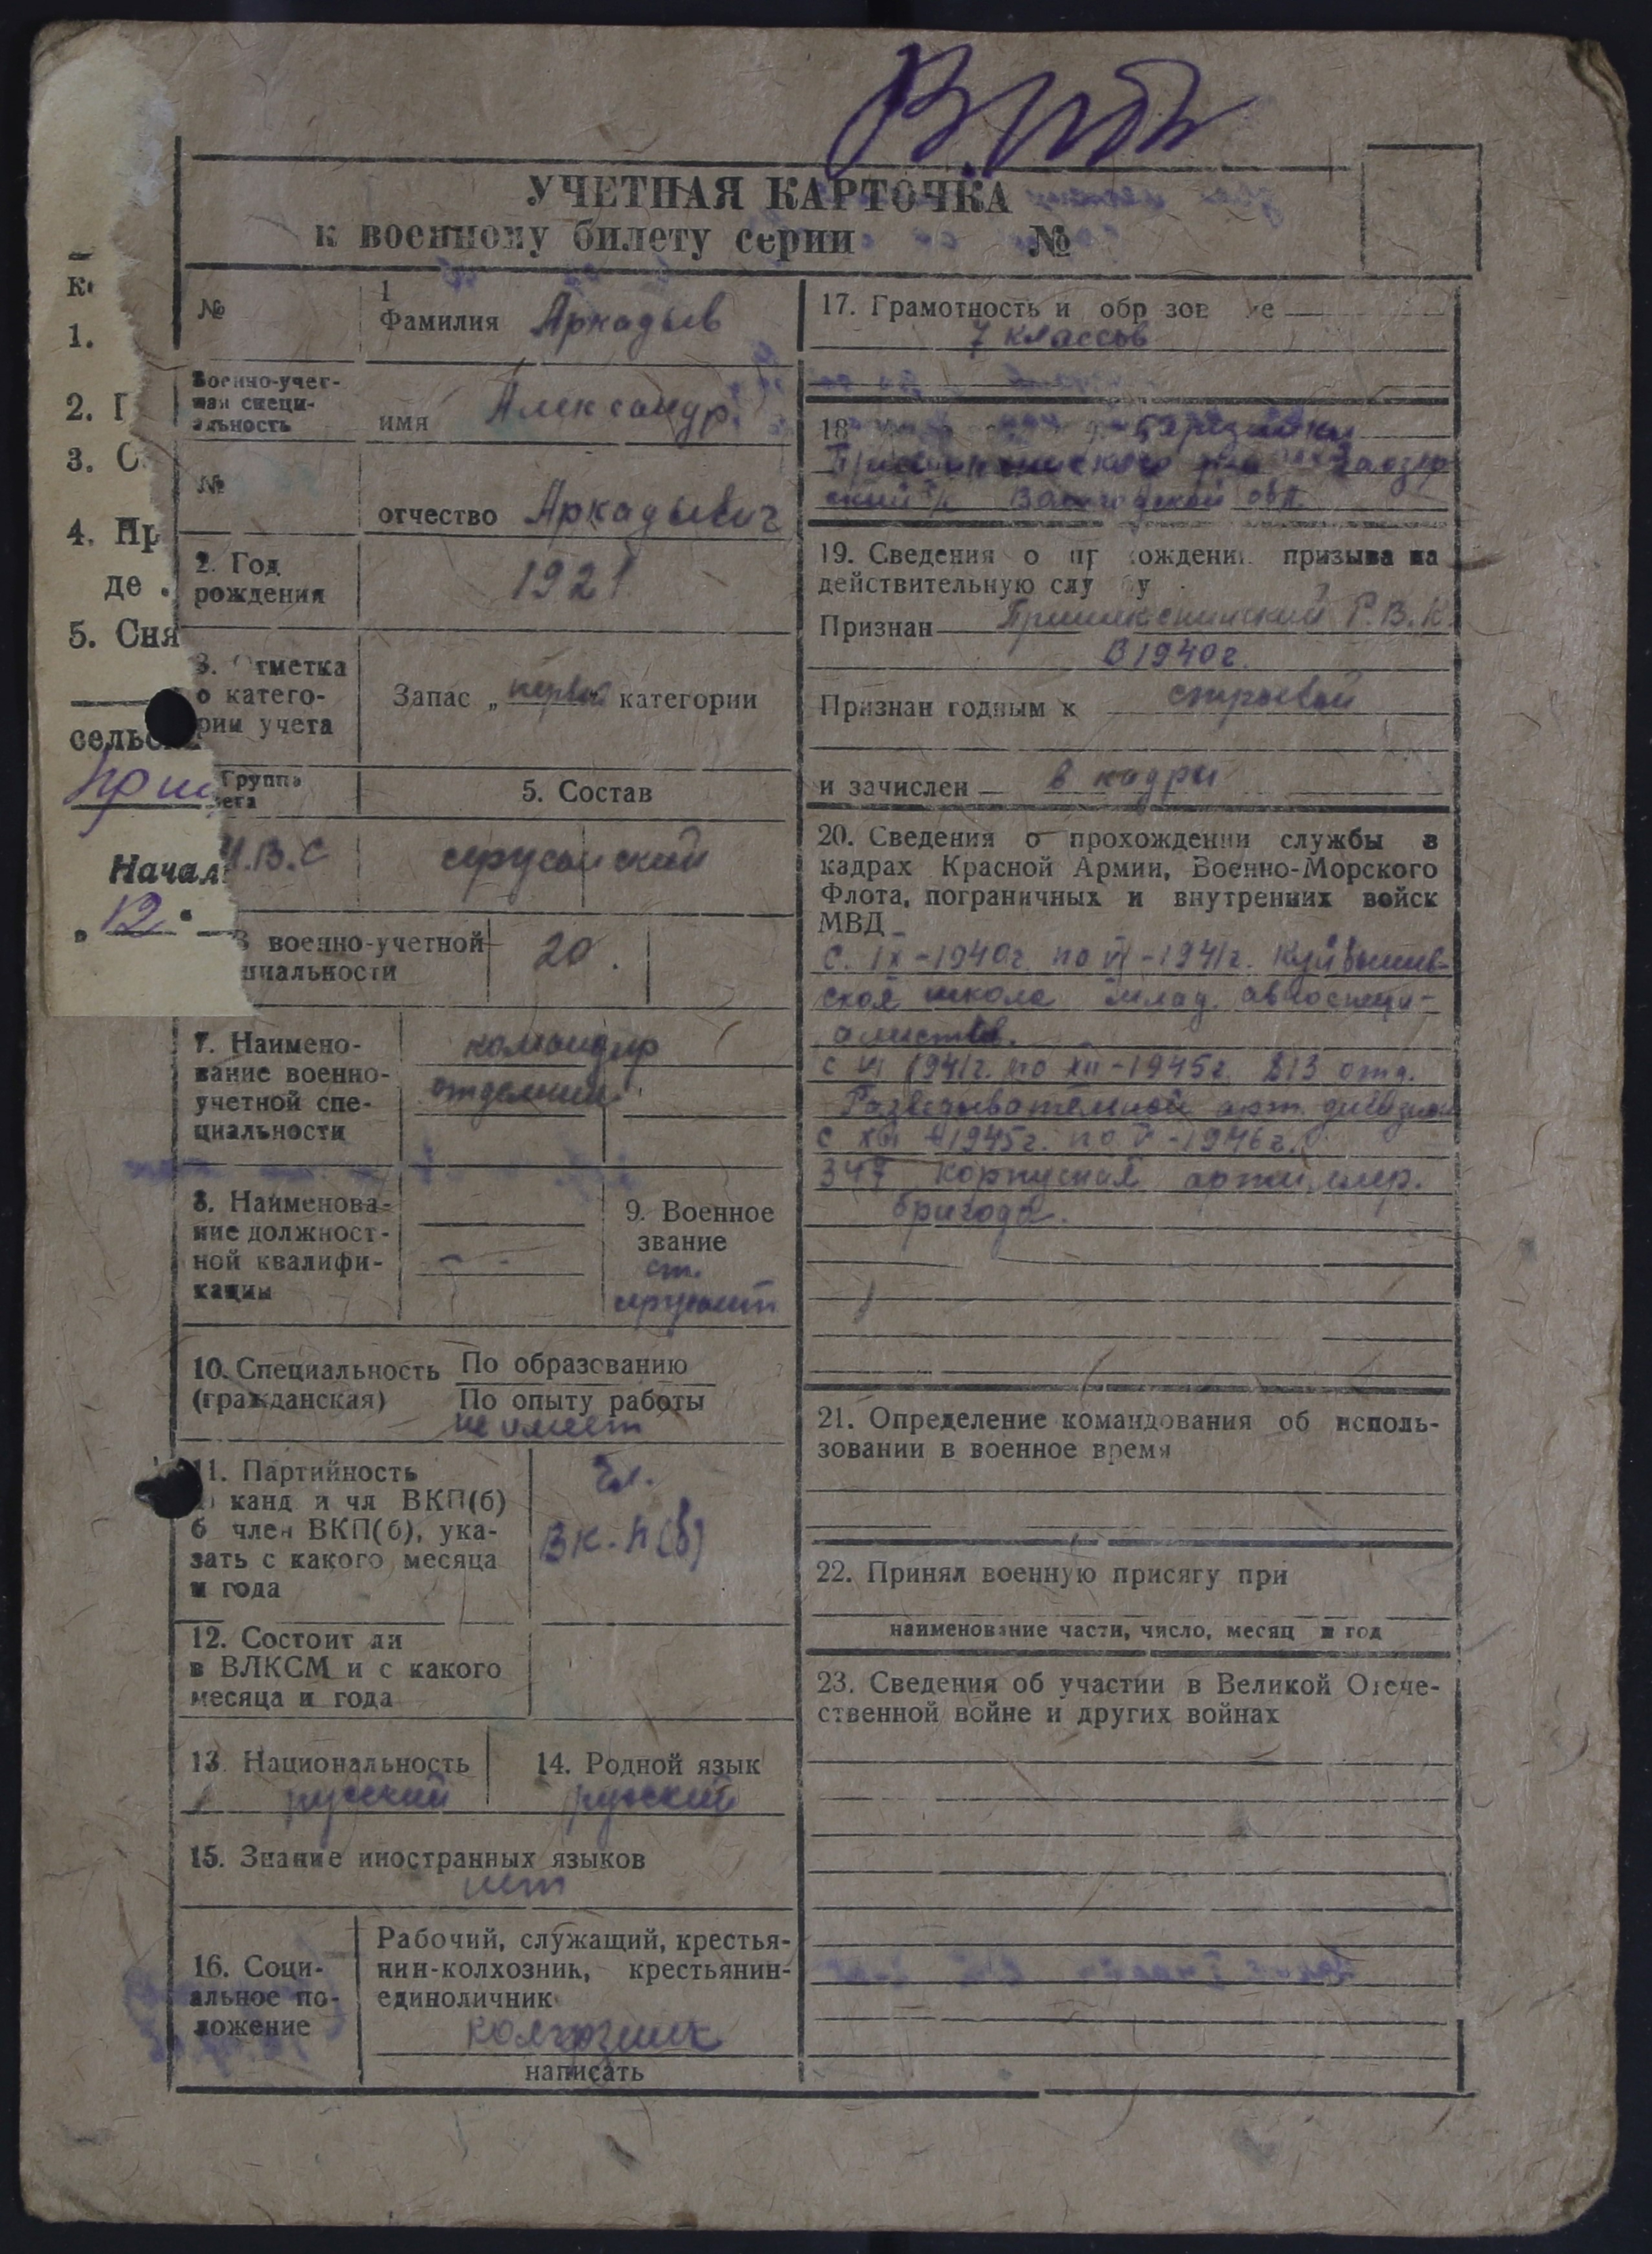 УЧЕТНАЯ КАРТОЧКА
к военному билету серии №
К
1.
2. Г
3. С
4. Пр
де
5. Сня
сельс
Начал
„12"
№
1
Фамилия Аркадьев
Военно-учет-
ная специ-
альность
имя Александр
№
отчество Аркадьевич
2. Год
рождения
1921
3. Отметка
о катего-
рии учета
Запас „первой" категории
Группа
учета
5. Состав
В.С
сержанский
военно-учетной
циальности
20.
7. Наимено-
вание военно-
учетной спе-
циальности
командир
отделения
8. Наименова-
ние должност-
ной квалифи-
кации
9. Военное
звание
ст.
сержант
10. Специальность
(гражданская)
По образованию
По опыту работы
не имеет
11. Партийность
канд и чл ВКП(б)
б член ВКП(б), ука-
зать с какого месяца
и года
Чл.
ВК.П(б)
12. Состоит ли
в ВЛКСМ и с какого
месяца и года
13. Национальность
русский
14. Родной язык
русский
15. Знание иностранных языков
нет
16. Соци-
альное по-
ложение
Рабочий, служащий, крестья-
нин-колхозник, крестьянин-
единоличник
колхозник
написать
17. Грамотность и образов е
7 классов
18
Пришекснинского
ский с/с Вологодской обл.
19. Сведения о пр охождении призыва на
действительную слу бу
Признан Пришекснинский Р.В.К.
В 1940г.
Признан годным к строевой
и зачислен в кадры
20. Сведения о прохождении службы в
кадрах Красной Армии, Военно-Морского
Флота, пограничных и внутренних войск
МВД
с. IX-1940г. по VI-1941г. Куйбышев-
ская школа млад. авиоспеци-
алистов.
с VI 1941г. по XII-1945г. 813 отд.
Разведывательной арт. дивизион
с XII-1945г. по V-1946г.
347 корпусная артиллер.
бригада.
21. Определение командования об исполь-
зовании в военное время
22. Принял военную присягу при
наименование части, число, месяц и год
23. Сведения об участии в Великой Отече-
ственной войне и других войнах